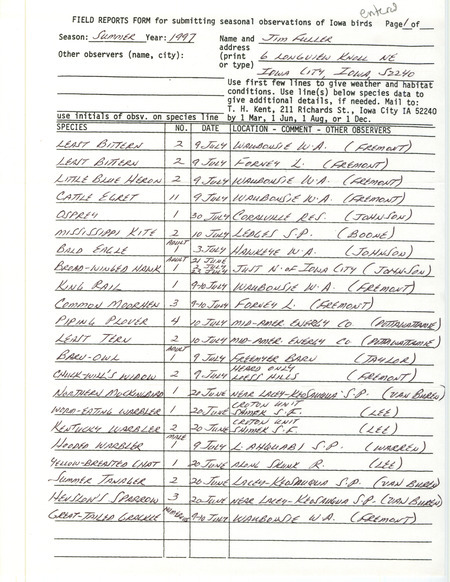 entered
FIELD REPORTS FORM for submitting seasonal observations of Iowa birds Page/of
Season: Summer Year: 1997 Name and Jim Fuller
address
Other observers (name, city): (print 6 Longview Knoll NE
or type) Iowa City, Iowa, 52240
Use first few lines to give weather and habitat
conditions. Use line(s) below species data to
give additional details, if needed. Mail to:
T. H. Kent, 211 Richards St., Iowa City IA 52240
use initials of obsv. on species line by 1 Mar, 1 Jun, 1 Aug, or 1 Dec.
SPECIES NO. DATE LOCATION - COMMENT - OTHER OBSERVERS
Least Bittern 2 9 July Waubonsie W.A. (Fremont)
Least Bittern 2 9 July Forney L. (Fremont)
Little Blue Heron 2 9 July Waubonsie W.A. (Fremont)
Cattle Egret 11 9 July Waubonsie W.A. (Fremont)
Osprey 1 30 July Coralville Res. (Johnson)
Mississippi Kite 2 10 July Ledges S.P. (Boone)
Bald Eagle Adult 1 3 July Hawkeye W.A. (Johnson)
Broad-winged Hawk Adult 1 21 June July Just N. of Iowa City (Johnson)
King Rail 1 9-10 July Waubonsie W.A. (Fremont)
Common Moorhen 3 9-10 July Forney L. (Fremont)
Piping Plover 4 10 July Mid-Amer Energy Co. (Pottawattamie)
Least Tern 2 10 July Mid-Amer Energy Co. (Pottawattamie)
Barn-Owl Adult 1 9 July Freemyer Barn (Taylor)
Heard only
Chuck-will's Widow 2 9 July Loess Hills (Fremont)
Northern Mockingbird 1 20 June near Lacey-Keosauqua S.P. (Van Buren)
Croton Unit
Worm-eating Warbler 1 20 June Shimek S.F. (Lee)
Croton Unit
Kentucky Warbler 2 20 June Shimek S.F. (Lee)
Hooded Warbler Male 1 9 July L. Ahquabi S.P. (Warren)
Yellow-breasted Chat 1 20 June along Skunk R. (Lee)
Summer Tanager 2 20 June Lacey-Keosauqua S.P. (Van Buren)
Henslow's Sparrow 3 20 June near Lacey-Keosauqua S.P. (Van Buren)
Great-tailed Grackle 9-10 July Waubonsie W.A. (Fremont)